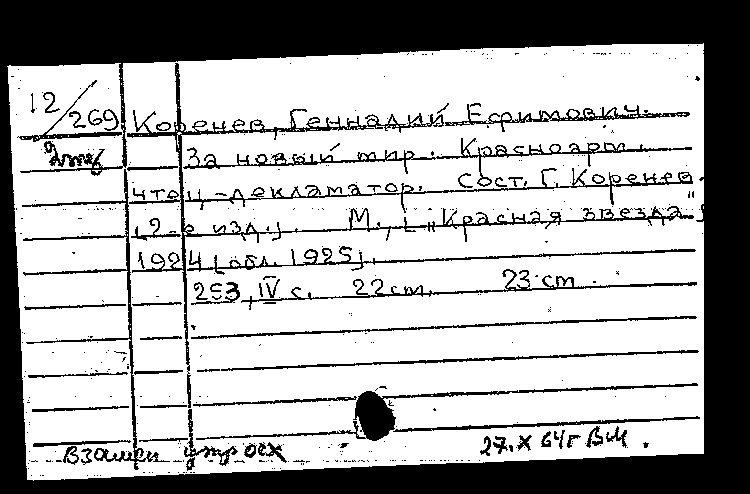 12/269 Коренев, Геннадий Ефимович.
За новый мир. Красноарм.
чтец-декламатор. Сост. Г. Коренев.
[2-е изд.]. М., [„Красная звезда"]
1924 [обл. 1925].
253, IV с. 22 см. 23 см.
Взамен 27.X 64 г